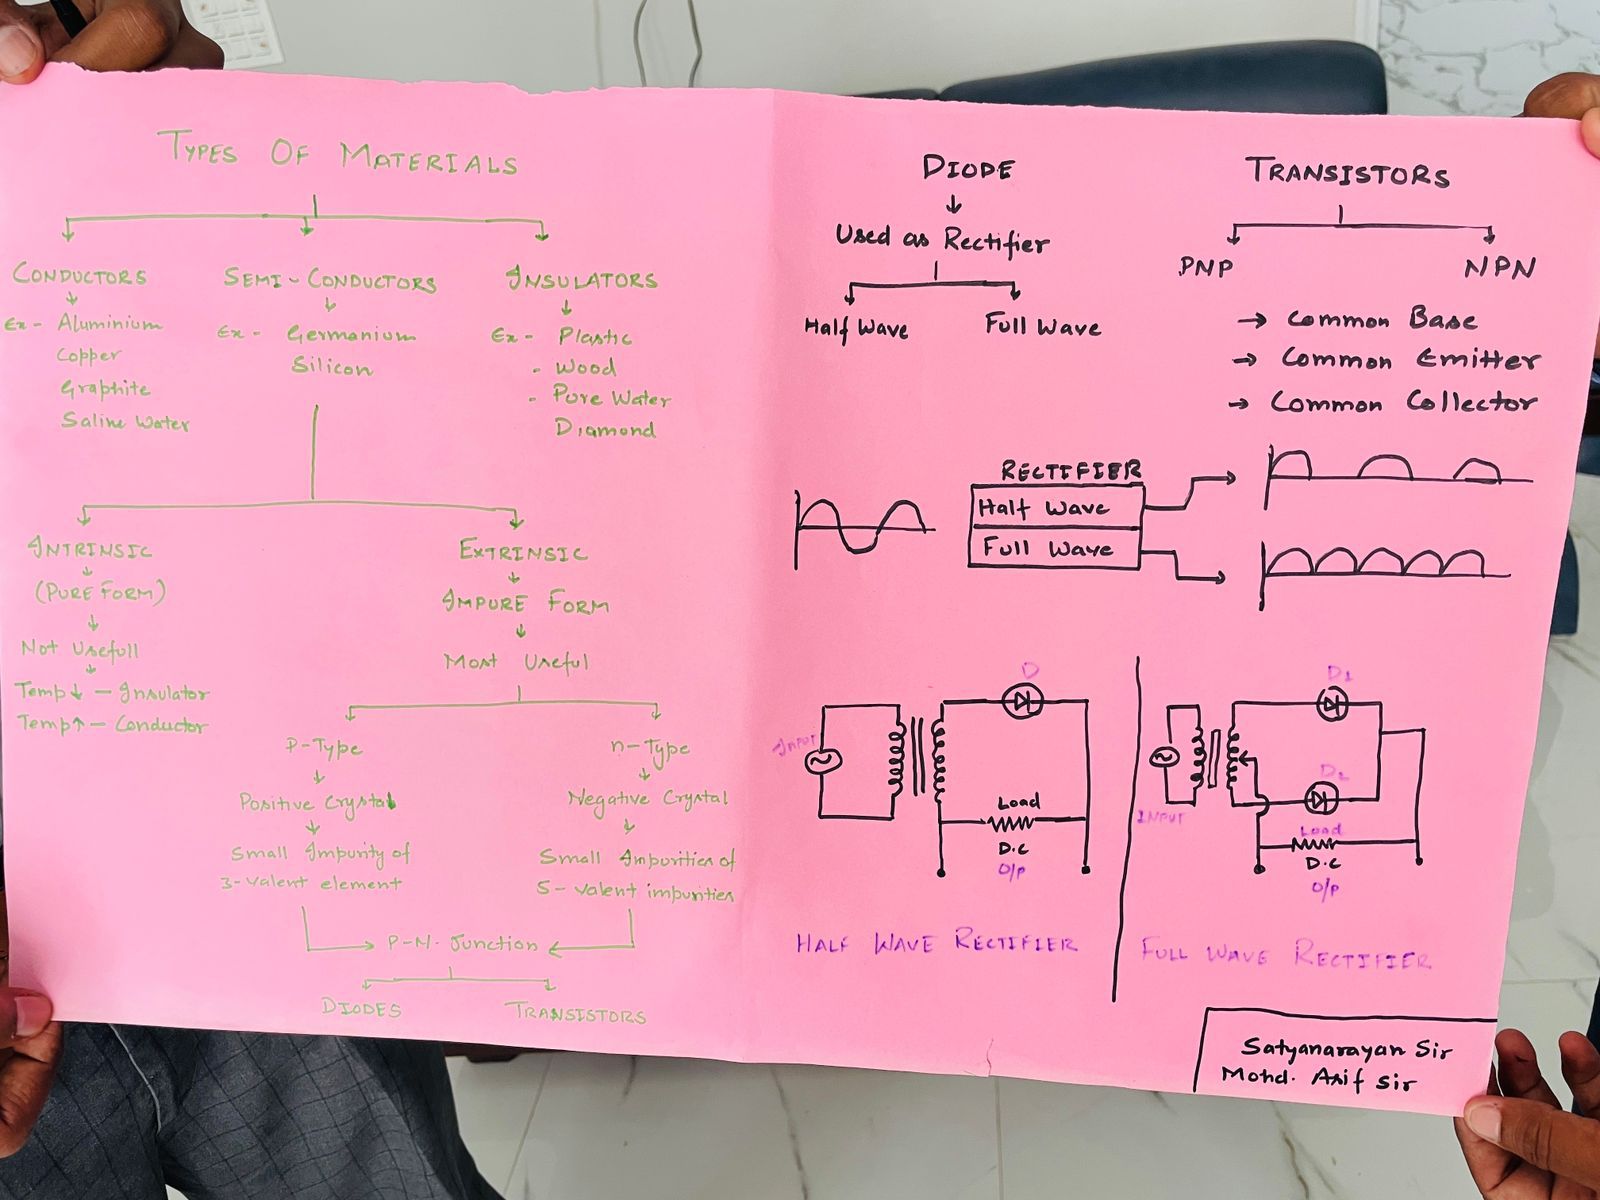 TYPES OF MATERIALS
CONDUCTORS
Ex - Aluminium
Copper
Graphite
Saline Water
SEMI - CONDUCTORS
Ex - Germanium
Silicon
INSULATORS
Ex - Plastic
- Wood
- Pure Water
Diamond
INTRINSIC
(PURE FORM)
Not Usefull
Temp↓ - Insulator
Temp↑ - Conductor
EXTRINSIC
IMPURE FORM
Most Useful
P-Type
Positive Crystal
Small Impurity of
3-valent element
n-Type
Negative Crystal
Small Impurities of
5-valent impurities
P-N-Junction
DIODES
TRANSISTORS
DIODE
Used as Rectifier
Half Wave
Full Wave
TRANSISTORS
PNP
NPN
→ Common Base
→ Common Emitter
→ Common Collector
RECTIFIER
Half Wave
Full Wave
D
INPUT
Load
D.C
O/P
HALF WAVE RECTIFIER
D1
D2
INPUT
Load
D.C
O/P
FULL WAVE RECTIFIER
Satyanarayan Sir
Mohd. Asif Sir